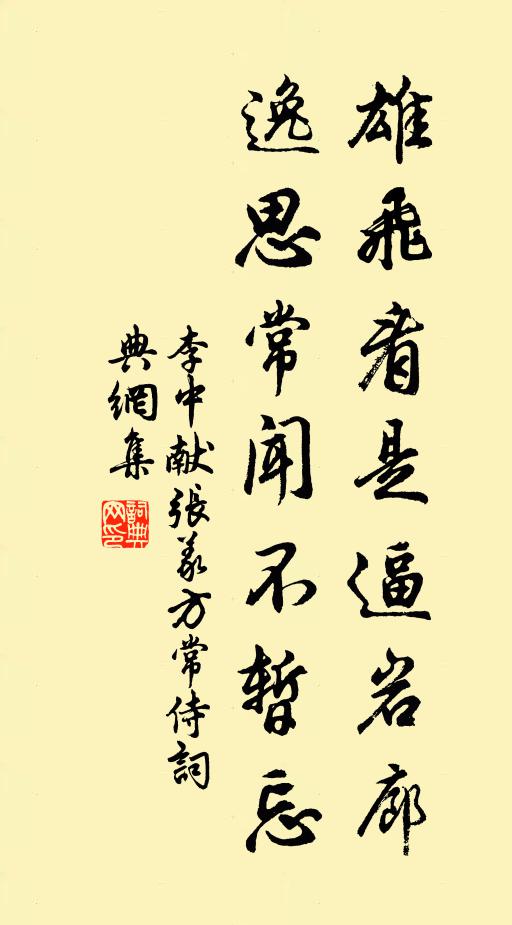 雄飛看是逼岩廊
逸思常聞不暫忘
李中献張義方常侍詞
典網集
詞典
网印